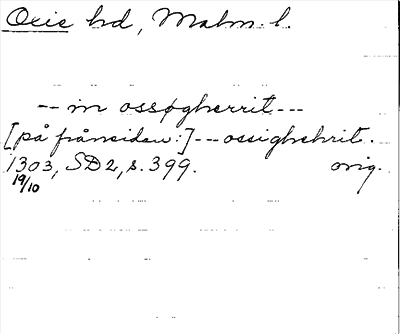 Oxie hd, Malm. l.
-- in ossøgherrit ---
[på frånsidan:] -- ossighehrit.
1303, SD2, s. 399. orig.
19/10